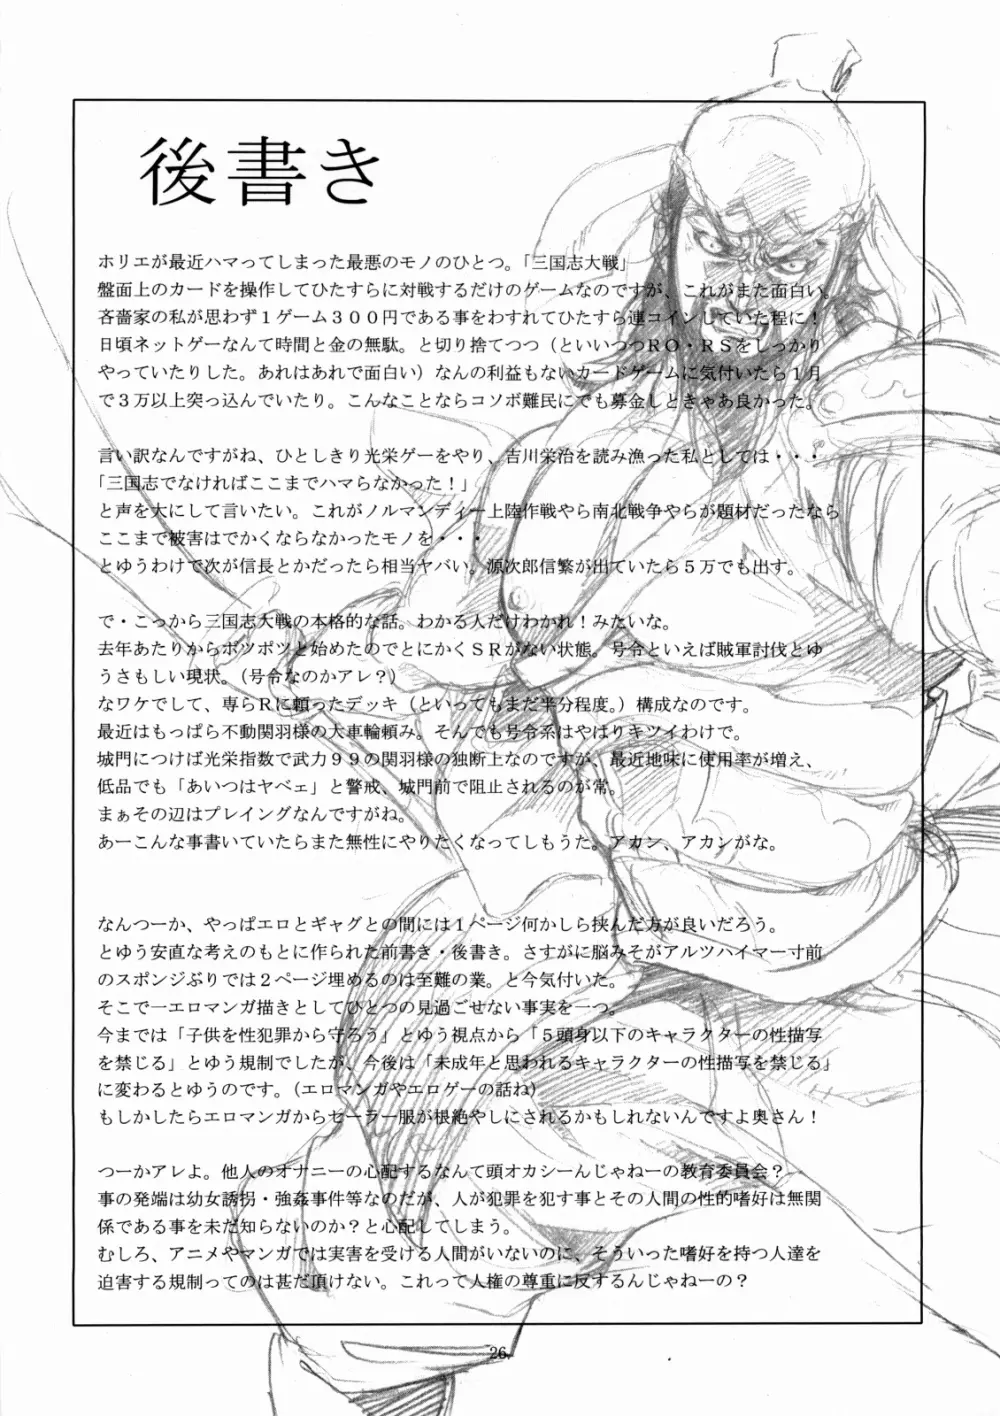 後書き
ホリエが最近ハマってしまった最悪のモノのひとつ。「三国志大戦」
盤面上のカードを操作してひたすらに対戦するだけのゲームなのですが、これがまた面白い。
吝嗇家の私が思わず１ゲーム３００円である事をわすれてひたすら連コインしていた程に！
日頃ネットゲーなんて時間と金の無駄。と切り捨てつつ（といいつつＲＯ・ＲＳをしっかり
やっていたりした。あれはあれで面白い）なんの利益もないカードゲームに気付いたら１月
で３万以上突っ込んでいたり。こんなことならコソボ難民にでも募金しときゃあ良かった。
言い訳なんですがね、ひとしきり光栄ゲーをやり、吉川栄治を読み漁った私としては・・・
「三国志でなければここまでハマらなかった！」
と声を大にして言いたい。これがノルマンディー上陸作戦やら南北戦争やらが題材だったなら
ここまで被害はでかくならなかったモノを・・・
とゆうわけで次が信長とかだったら相当ヤバい。源次郎信繁が出ていたら５万でも出す。
で・こっから三国志大戦の本格的な話。わかる人だけわかれ！みたいな。
去年あたりからポツポツと始めたのでとにかくＳＲがない状態。号令といえば賊軍討伐とゆ
うさもしい現状。（号令なのかアレ？）
なワケでして、専らＲに頼ったデッキ（といってもまだ半分程度。）構成なのです。
最近はもっぱら不動関羽様の大車輪頼み。そんでも号令系はやはりキツイわけで。
城門につけば光栄指数で武力９９の関羽様の独断上なのですが、最近地味に使用率が増え、
低品でも「あいつはヤベェ」と警戒、城門前で阻止されるのが常。
まぁその辺はプレイングなんですがね。
あーこんな事書いていたらまた無性にやりたくなってしもうた。アカン、アカンがな。
なんつーか、やっぱエロとギャグとの間には１ページ何かしら挟んだ方が良いだろう。
とゆう安直な考えのもとに作られた前書き・後書き。さすがに脳みそがアルツハイマー寸前
のスポンジぶりでは２ページ埋めるのは至難の業。と今気付いた。
そこで一エロマンガ描きとしてひとつの見過ごせない事実を一つ。
今までは「子供を性犯罪から守ろう」とゆう視点から「５頭身以下のキャラクターの性描写
を禁じる」とゆう規制でしたが、今後は「未成年と思われるキャラクターの性描写を禁じる」
に変わるとゆうのです。（エロマンガやエロゲーの話ね）
もしかしたらエロマンガからセーラー服が根絶やしにされるかもしれないんですよ奥さん！
つーかアレよ。他人のオナニーの心配するなんて頭オカシーんじゃねーの教育委員会？
事の発端は幼女誘拐・強姦事件等なのだが、人が犯罪を犯す事とその人間の性的嗜好は無関
係である事を未だ知らないのか？と心配してしまう。
むしろ、アニメやマンガでは実害を受ける人間がいないのに、そういった嗜好を持つ人達を
迫害する規制ってのは甚だ頂けない。これって人権の尊重に反するんじゃねーの？
26